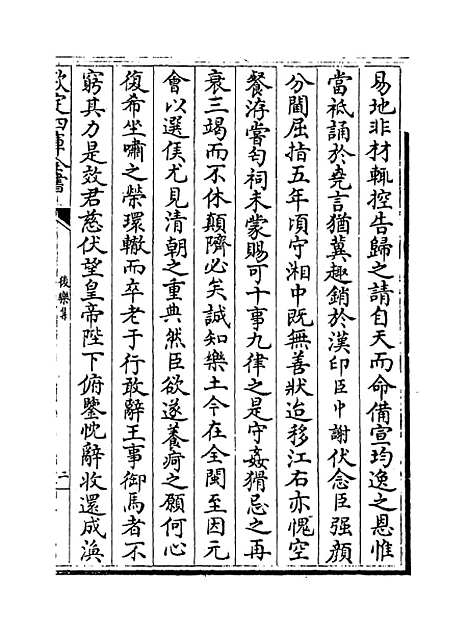 易地非材輒控告歸之請自天而命備宣均逸之恩惟
當祗誦於堯言猶冀趣銷於漢印臣中謝伏念臣强顔
分閫屈指五年頃守湘中既無善狀迨移江右亦愧空
餐洊嘗匄祠未蒙賜可十事九律之是守姦猾忌之再
衰三竭而不休顛隮必矣誠知樂土今在全閩至因元
會以選侯尤見清朝之重典然臣欲遂養痾之願何心
復希坐嘯之榮環轍而卒老于行敢辭王事御馬者不
窮其力是效君慈伏望皇帝陛下俯鑒忱辭收還成渙
欽定四庫全書
後樂集
二